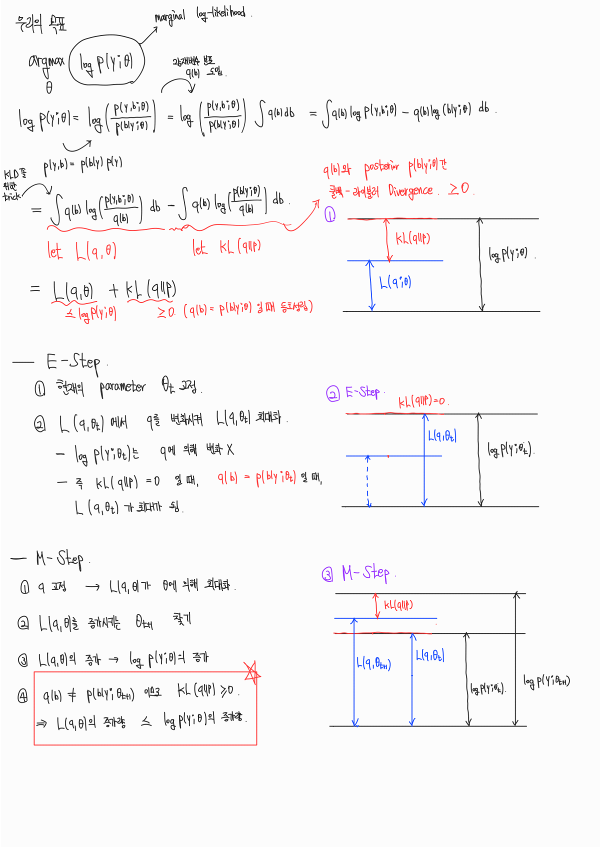 우리의 목표
marginal log-likelihood.
argmax log p(y;θ)
θ
잠재변수 분포
q(b) 도입.
log p(y;θ) = log(p(y,b;θ)/p(b|y;θ)) = log(p(y,b;θ)/p(b|y;θ)) ∫q(b)db = ∫q(b) log p(y,b;θ) − q(b) log (b|y;θ) db.
p(y,b) = p(b|y) p(y)
KLD를
위한
trick
= ∫q(b) log(p(y,b;θ)/q(b)) db − ∫q(b) log(p(b|y;θ)/q(b)) db.
let L(q,θ)
let KL(q||p)
q(b)와 posterior p(b|y;θ)간
쿨백-라이블러 Divergence. ≥0.
= L(q,θ) + KL(q||p)
≤ log p(y;θ)
≥0 (q(b) = p(b|y;θ) 일 때 등호성립)
①
KL(q||p)
L(q;θ)
log p(y;θ).
— E-Step.
① 현재의 parameter θt 고정.
② L(q,θt) 에서 q를 변화시켜 L(q,θt) 최대화.
– log p(y;θt)는 q에 의해 변화 X
– 즉 KL(q||p) = 0 일 때, q(b) = p(b|y;θt) 일 때,
L(q,θt)가 최대가 됨.
② E-Step.
KL(q||p)=0.
L(q,θt)
log p(y;θt).
— M-Step.
① q 고정 → L(q,θ)가 θ에 의해 최대화.
② L(q,θ)를 증가시키는 θt+1 찾기
③ L(q,θ)의 증가 → log p(y;θ)의 증가
④ q(b) ≠ p(b|y;θt+1) 이므로 KL(q||p) ≥0.
⇒ L(q,θ)의 증가량 ≤ log p(y;θ)의 증가량.
③ M-Step.
KL(q||p)
L(q,θt+1)
L(q,θt)
log p(y;θt).
log p(y;θt+1)